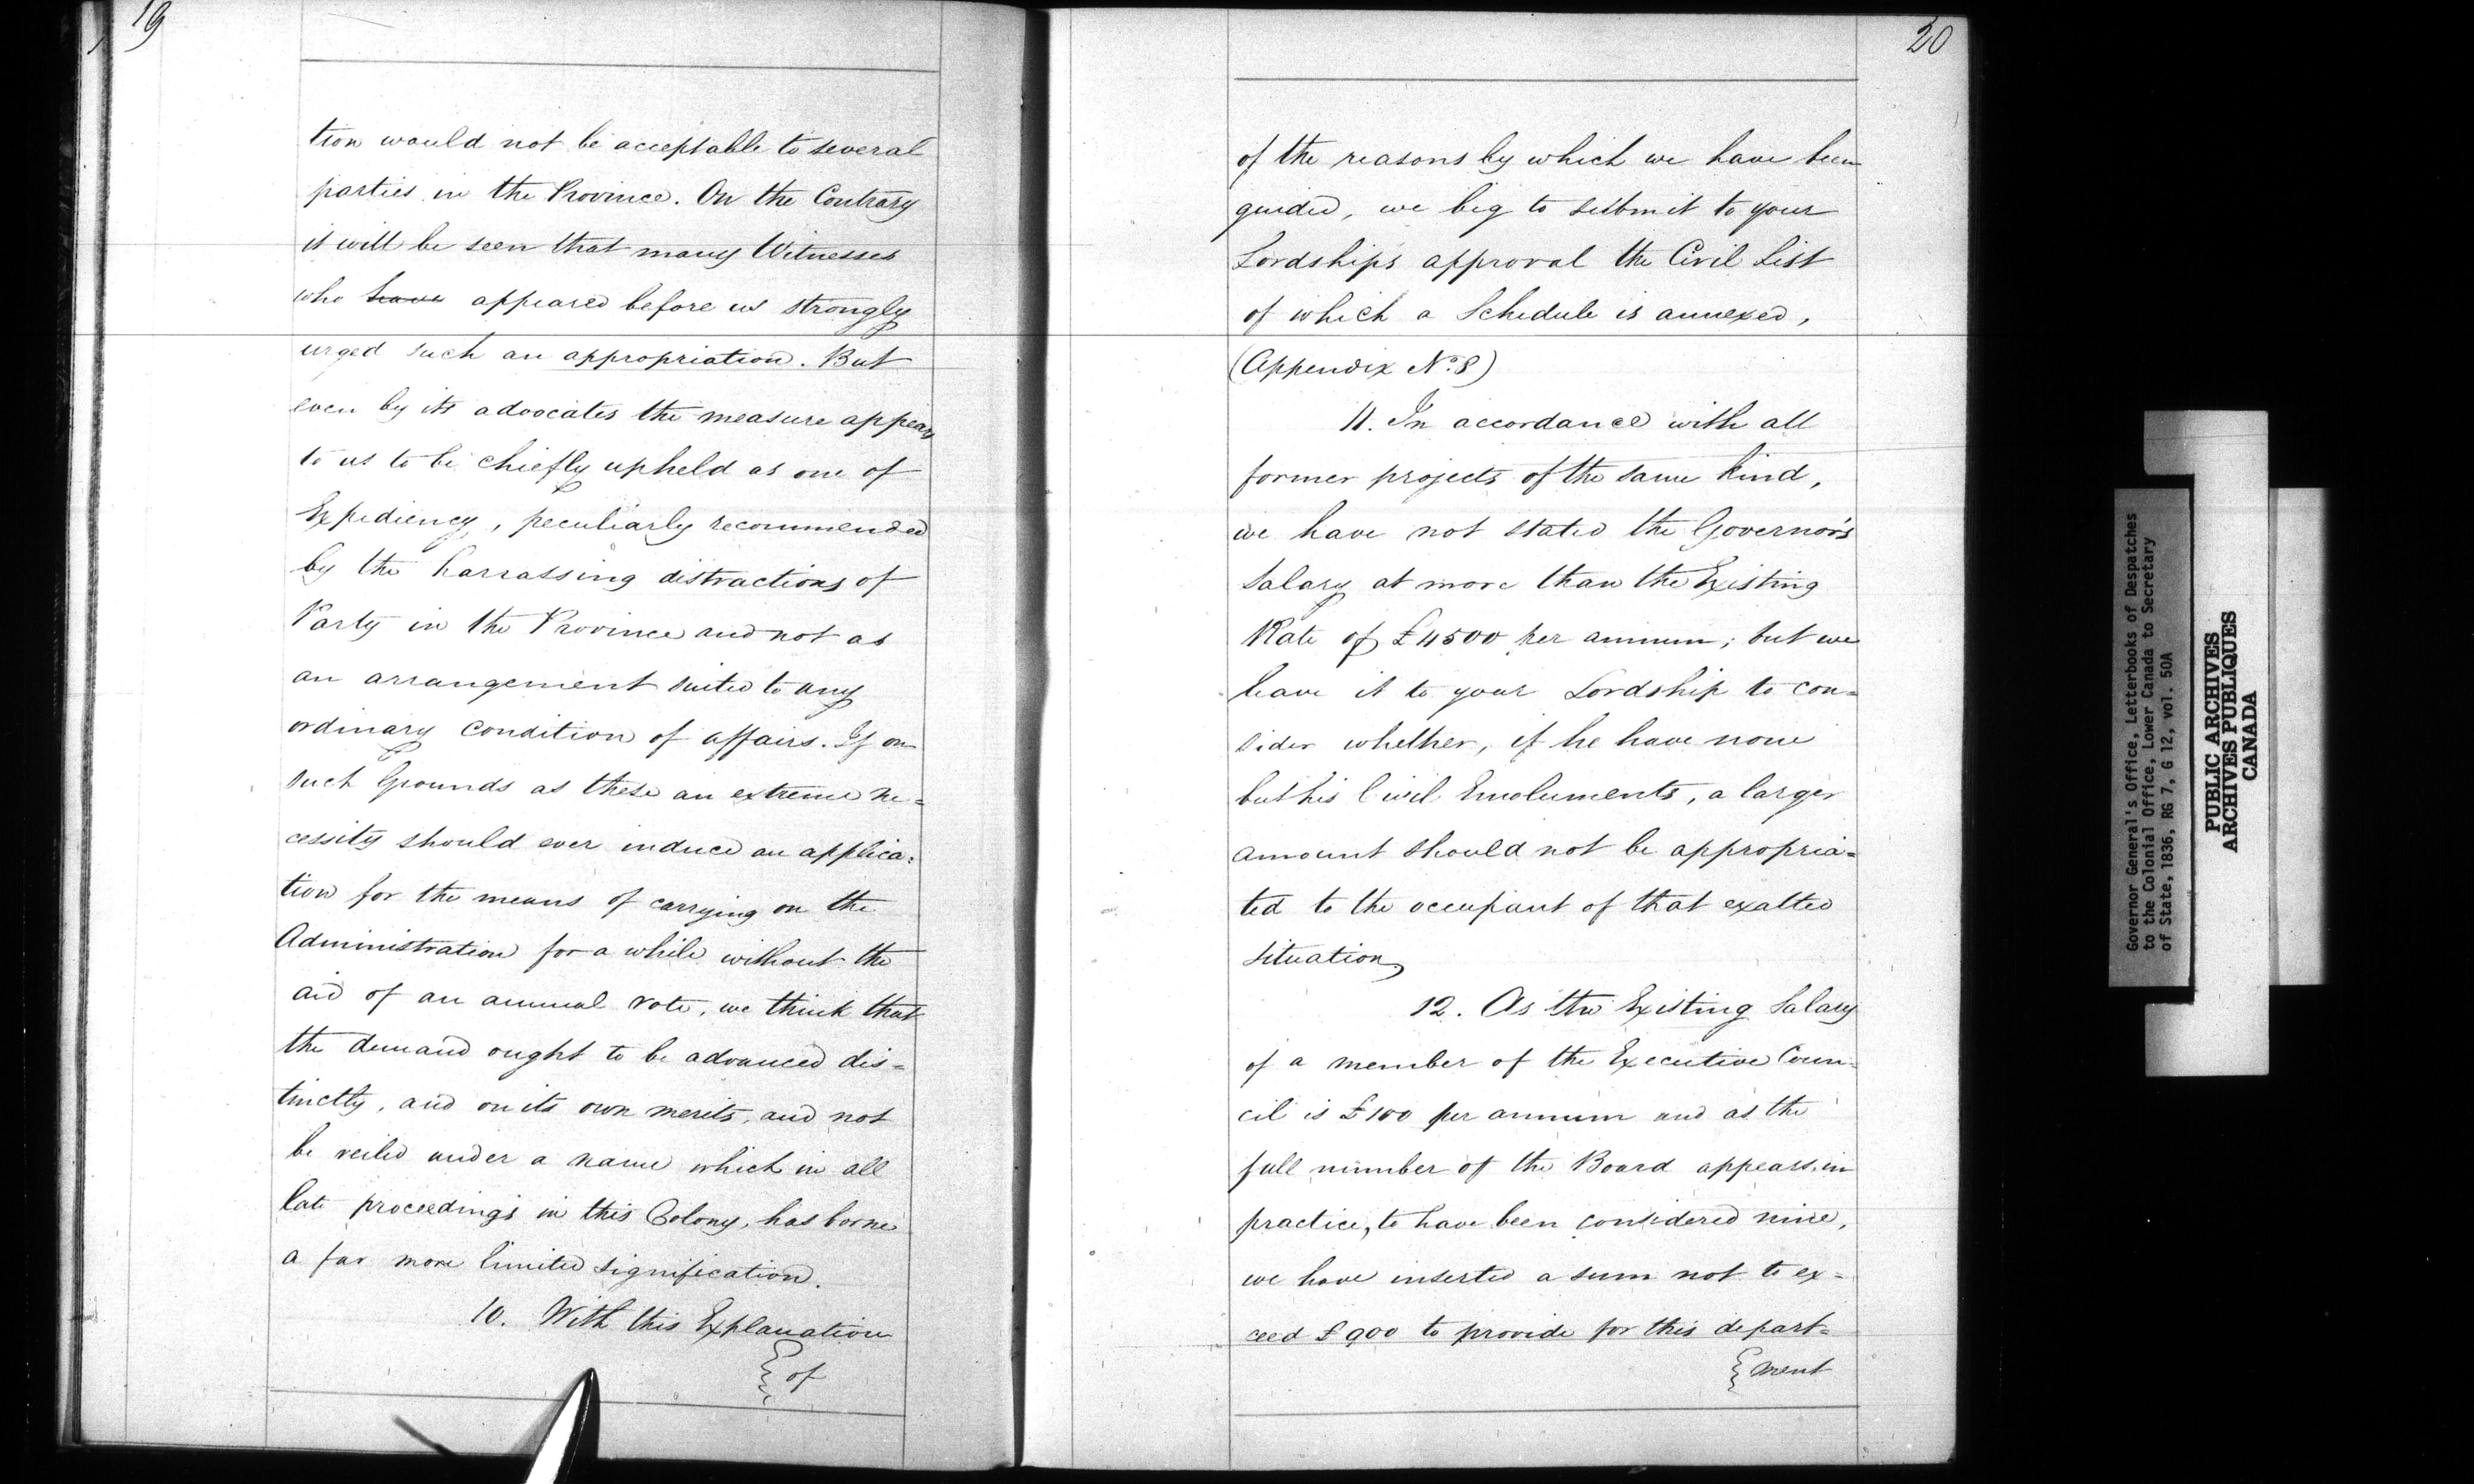 19
tion would not be acceptable to several
parties in the Province. On the Contrary
it will be seen that many Witnesses
who have appeared before us strongly
urged such an appropriation. But
even by its advocates the measure appears
to us to be chiefly upheld as one of
Expediency, peculiarly recommended
by the harrassing distractions of
Party in the Province and not as
an arrangement suited to any
ordinary Condition of affairs. If on
such Grounds as these an extreme ne=
cessity should ever induce an applica=
tion for the means of carrying on the
Administration for a while without the
aid of an annual vote, we think that
the demand ought to be advanced dis=
tinctly, and on its own merits, and not
be veiled under a name which in all
late proceedings in this Colony, has borne
a far more limited signification.
10. With this Explanation
of
20
of the reasons by which we have been
guided, we beg to submit to your
Lordships approval the Civil List
of which a Schedule is annexed,
(Appendix No. 8)
11. In accordance with all
former projects of the same kind,
we have not stated the Governor's
Salary at more than the Existing
Rate of £4500 per annum; but we
leave it to your Lordship to con=
sider whether, if he have none
but his Civil Emoluments, a larger
amount should not be appropria=
ted to the occupant of that exalted
situation,
12. As the Existing Salary
of a member of the Executive Coun=
cil is £100 per annum and as the
full number of the Board appears, in
practice, to have been considered nine,
we have inserted a sum not to ex=
ceed £900 to provide for this depart=
ment
Governor General's Office, Letterbooks of Despatches
to the Colonial Office, Lower Canada to Secretary
of State, 1836, RG 7, G 12, vol. 50A
PUBLIC ARCHIVES
ARCHIVES PUBLIQUES
CANADA